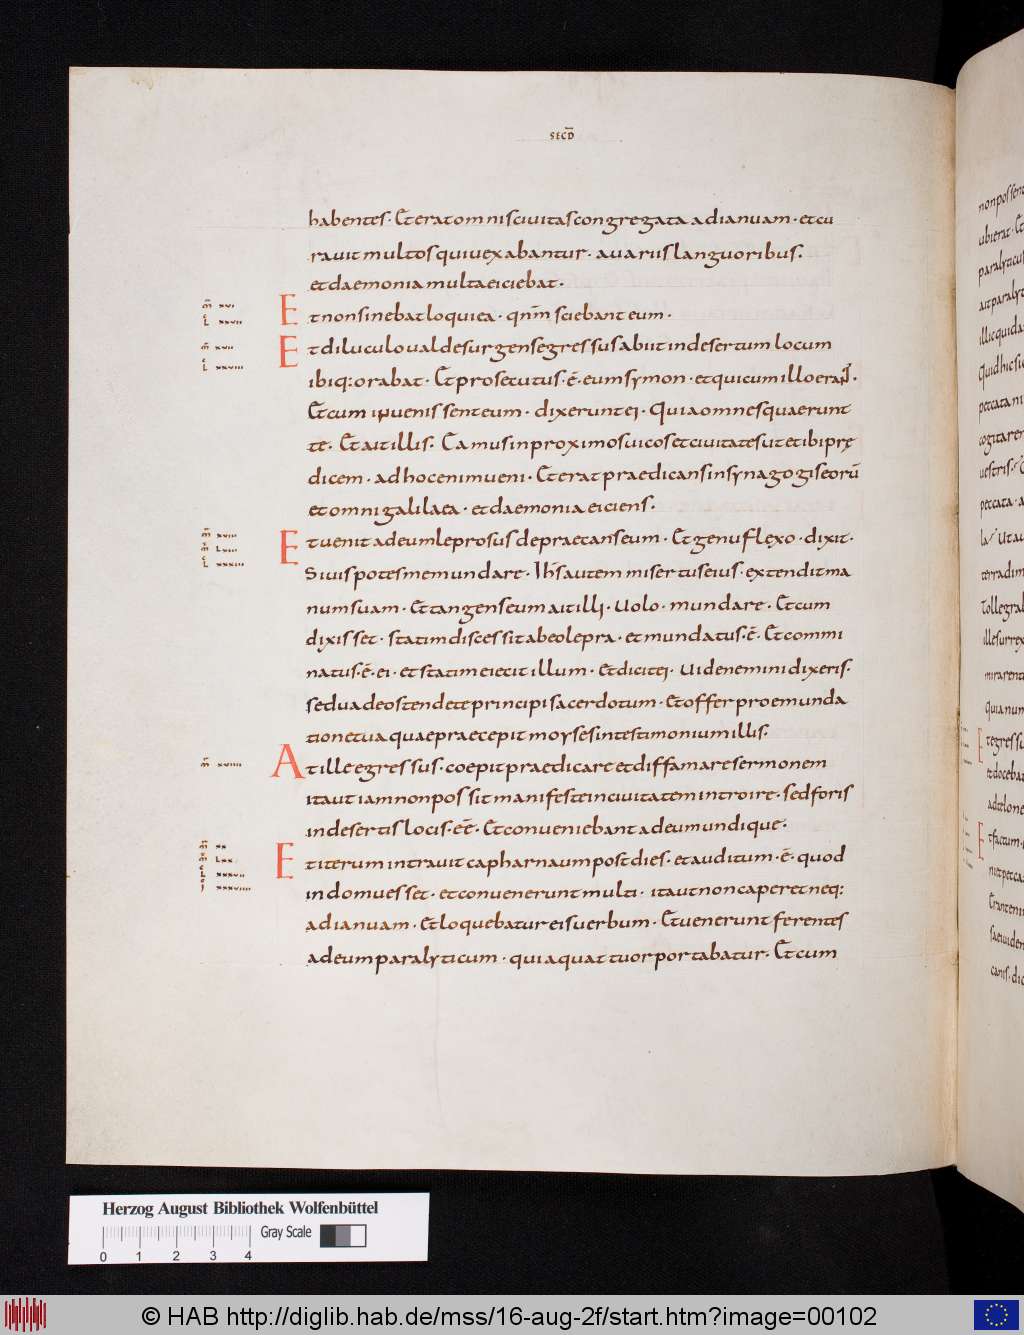 SECD̄
habentes· Et erat omnis civitas congregata ad ianuam· et cu
ravit multos qui vexabantur· a variis languoribus·
et daemonia multa eiciebat·
m̄ xvi
L xxvii
Et non sinebat loqui ea· qnm̄ sciebant eum·
m̄ xvii
L xxviii
Et diluculo valde surgens egressus abiit in desertum locum
ibiq: orabat· Et prosecutus·ē·eum symon· et qui cum illo erant·
Et cum invenissent eum· dixerunt ei· Quia omnes quaerunt
te· Et ait illis· Eamus in proximos vicos et civitates ut et ibi prę
dicem· ad hoc enim veni· Et erat praedicans in synagogis eorū
et omni galilaea· et daemonia eiciens·
m̄ xviii
m̄ Lviii
L xxxiii
Et venit ad eum leprosus depraecans eum· Et genu flexo· dixit·
Si vis potes me mundare· Ihs̄ autem misertus eius· extendit ma
num suam· Et tangens eum ait illi· Volo· mundare· Et cum
dixisset· statim discessit ab eo lepra· et mundatus·ē· Et commi
natus·ē·ei· et statim eiecit illum· Et dicit ei· Vide nemini dixeris·
sed vade ostende te principi sacerdotum· Et offer pro emunda
tione tua quae praecepit moyses in testimonium illis·
m̄ xviiii
At ille egressus· coepit praedicare et diffamare sermonem
ita ut iam non possit manifeste in civitatem introire· sed foris
in desertis locis·eē· Et conveniebant ad eum undique·
m̄ xx
m̄ Lxx
L xxxvii
J xxxviiii
Et iterum intravit capharnaum post dies· et auditum·ē· quod
in domu esset· et convenerunt multi· ita ut non caperet neq:
ad ianuam· Et loquebatur eis verbum· Et venerunt ferentes
ad eum paralyticum· qui a quattuor portabatur· Et cum
non possent
ubi erat· Et
ait paralyt
illic quida
Quid hic si
peccata ni
cogitaren
vestris·
peccata· a
la· Ut au
terra dim
Tolle grab
ille surrex
mirarent
quia num
Et egressu
et doceba
ad telone
Et factum·
Herzog August Bibliothek Wolfenbüttel
Gray Scale
0 1 2 3 4
© HAB http://diglib.hab.de/mss/16-aug-2f/start.htm?image=00102